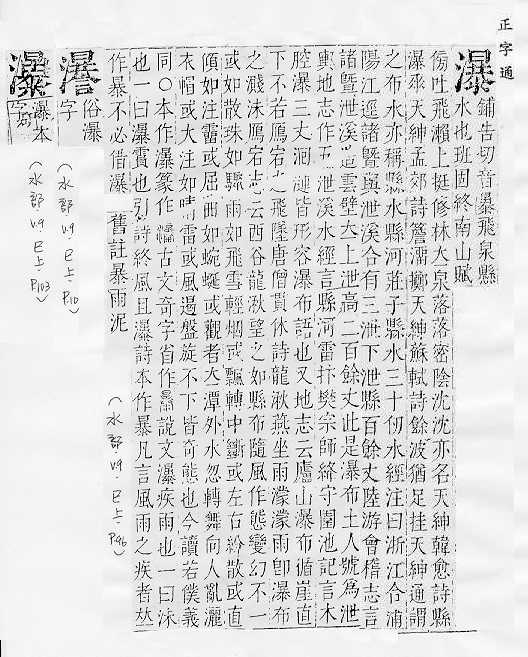 正字通
瀑
鋪告切音暴飛泉縣
水也班固終南山賦
傍吐飛瀨上挺修林大泉落落密陰沈沈亦名天紳韓愈詩縣
瀑垂天紳孟郊詩簷溜擲天紳蘇軾詩餘波猶足挂天紳通謂
之布水亦稱縣水縣河莊子縣水三十仞水經注曰浙江合浦
陽江逕諸暨與泄溪合有三泄下泄縣百餘丈陸游會稽志言
諸暨泄溪造雲壁大上泄高二百餘丈此是瀑布土人號為泄
輿地志作五泄溪水經言縣河雷抃樊宗師絳守園池記言木
腔瀑三丈涎皆形容瀑布語也又地志云廬山瀑布循崖直
下不若鴈宕飛墜唐僧貫休詩龍湫燕坐雨濛濛雨卽瀑布
之濺沫鴈宕志云西谷龍湫望之如縣布隨風作態變幻不一
或如散珠如驟雨如飛雪輕烟或飄轉中斷或左右紛散或直
傾如注霤或屈曲如蜿蜒或觀者立潭外水忽轉舞向人亂灑
衣帽或大注如晴雷或風遏盤旋不下皆奇態也今讀若僕義
同○本作瀑篆作古文奇字省作說文瀑疾雨也一曰沬
也一曰瀑霣也引詩終風且瀑詩本作暴凡言風雨之疾者𠀤
作暴不必借瀑 舊註暴雨泥
（水部 V9 巳上 P96）
俗瀑
字
（水部 V9 巳上 P10）
瀑本
字
（水部 V9 巳上 P103）